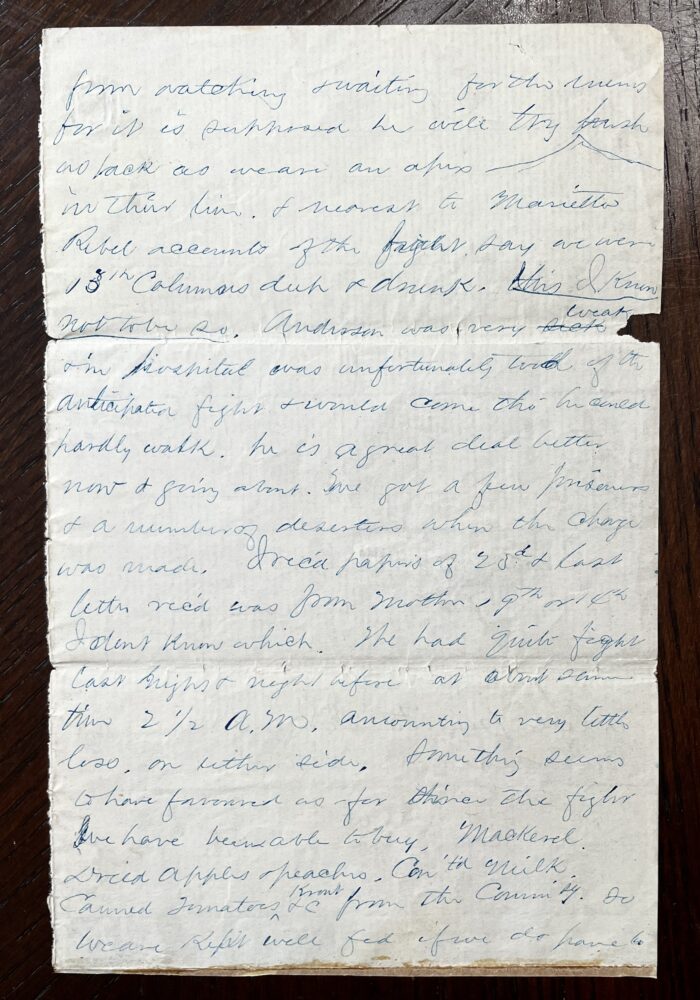 from watching & waiting for the enemy
for it is supposed he will try push
us back as we are an apex
in their line. & nearest to Marietta
Rebel accounts of the fight, say we were
13th Columns deep & drunk. this I Know
not to be so. Anderson was very sick weak
& in hospital was unfortunately told of the
anticipated fight & would come tho he could
hardly walk. he is a great deal better
now & going about. We got a few prisoners
& a number of deserters when the charge
was made. I rec'd papers of 23d & last
letter rec'd was from Mother 19th or 14th
I dont Know which. We had quite fight
last night & night before at about same
time 2 1/2 A.M. amounting to very little
loss, on either side. Something seems
to have favoured us for since the fight
We have been able to buy, Mackerel.
Dried Apples & peaches. Con'td Milk.
Canned Tomatoes, Krout &c from the Comm'sy. So
We are Kept well fed if we do have to